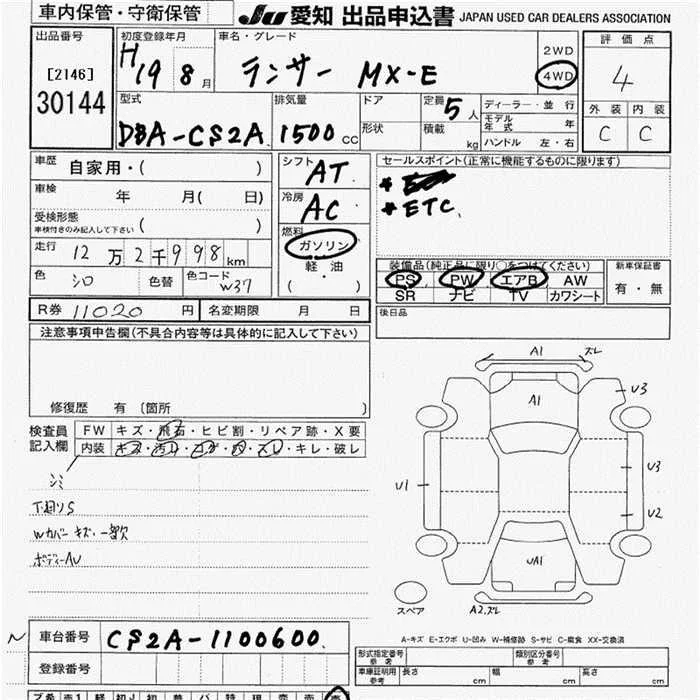 車内保管・守衛保管
JU 愛知 出品申込書 JAPAN USED CAR DEALERS ASSOCIATION
出品番号
[2146]
30144
初度登録年月
H19 8月
車名・グレード
ランサー MX-E
2WD
4WD
評価点
4
外装 内装
C C
型式
DBA-CS2A
排気量
1500cc
ドア
形状
定員 5人
積載 kg
ディーラー・並行
モデル年式 年
ハンドル 左・右
車歴 自家用・( )
車検 年 月( 日)
受検形態
車検付きのみ記入して下さい ( )
走行 12万2千998km
色 シロ 色替 色コード W37
シフト AT
冷房 AC
燃料
ガソリン
軽油
( ・ )
セールスポイント(正常に機能するものに限ります)
*
*ETC.
装備品(純正品に限り○をつけてください)
PS PW エアB AW
SR ナビ TV カワシート
新車保証書
有・無
後日品
R券 11020 円 名変期限 月 日
注意事項申告欄(不具合内容等は具体的に記入して下さい)
修復歴 有 〔箇所 〕
検査員記入欄
FW キズ・飛石・ヒビ割・リペア跡・X要
内装 キズ・汚れ・コゲ・穴・スレ・キレ・破レ
シミ
下廻りS
Wカバーキズ・一部欠
ボディーAU
A1 ズレ
A1
U3
U1
U3
U2
UA1
スペア
A2.ズレ
A-キズ E-エクボ U-凹み W-補修跡 S-サビ C-腐食 XX-交換済
N
車台番号 CS2A-1100600
登録番号
形式指定番号 参考
類別区分番号 参考
車庫証明用 参考 長さ cm 幅 cm 高さ cm